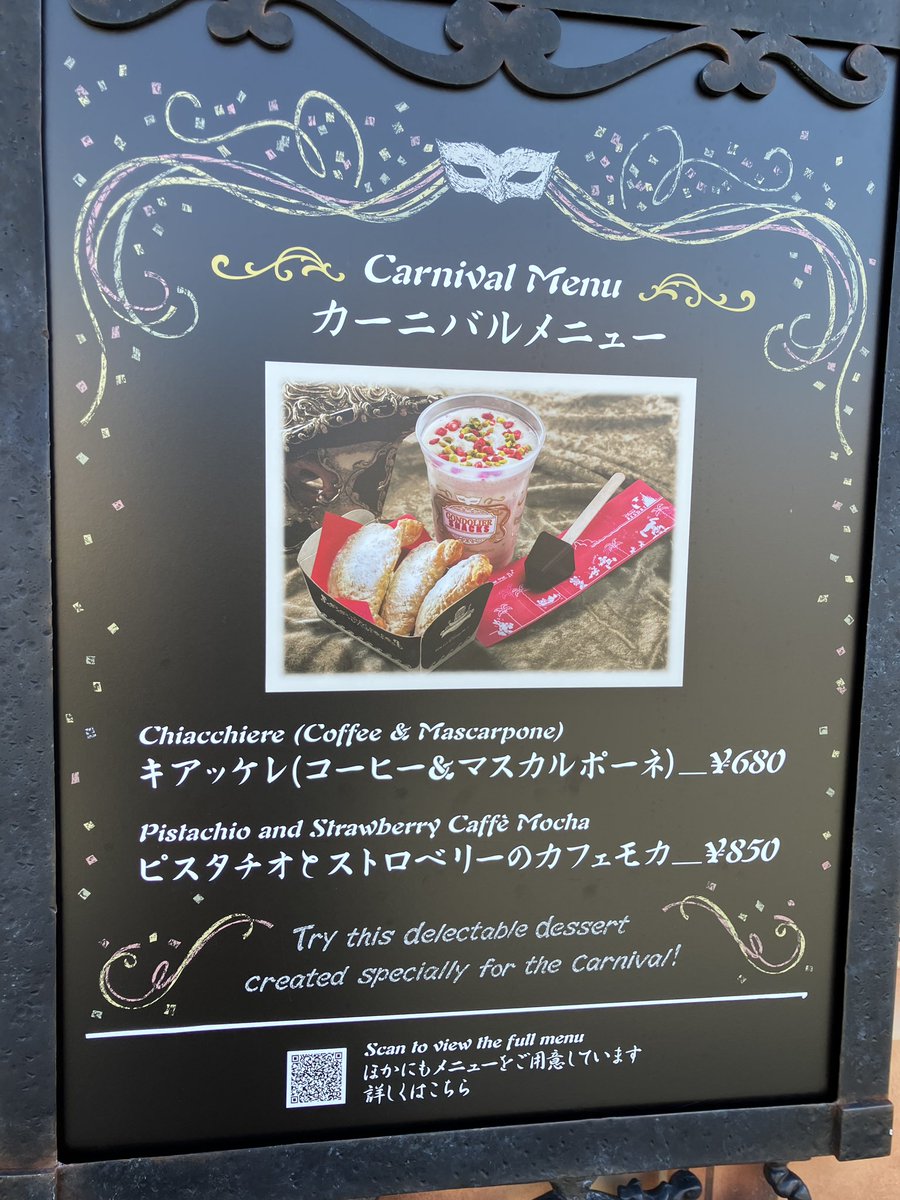 Carnival Menu
カーニバルメニュー
GONDOLIER
SNACKS
Chiacchiere (Coffee & Mascarpone)
キアッケレ(コーヒー&マスカルポーネ)＿¥680
Pistachio and Strawberry Caffè Mocha
ピスタチオとストロベリーのカフェモカ＿¥850
Try this delectable dessert
created specially for the Carnival!
Scan to view the full menu
ほかにもメニューをご用意しています
詳しくはこちら